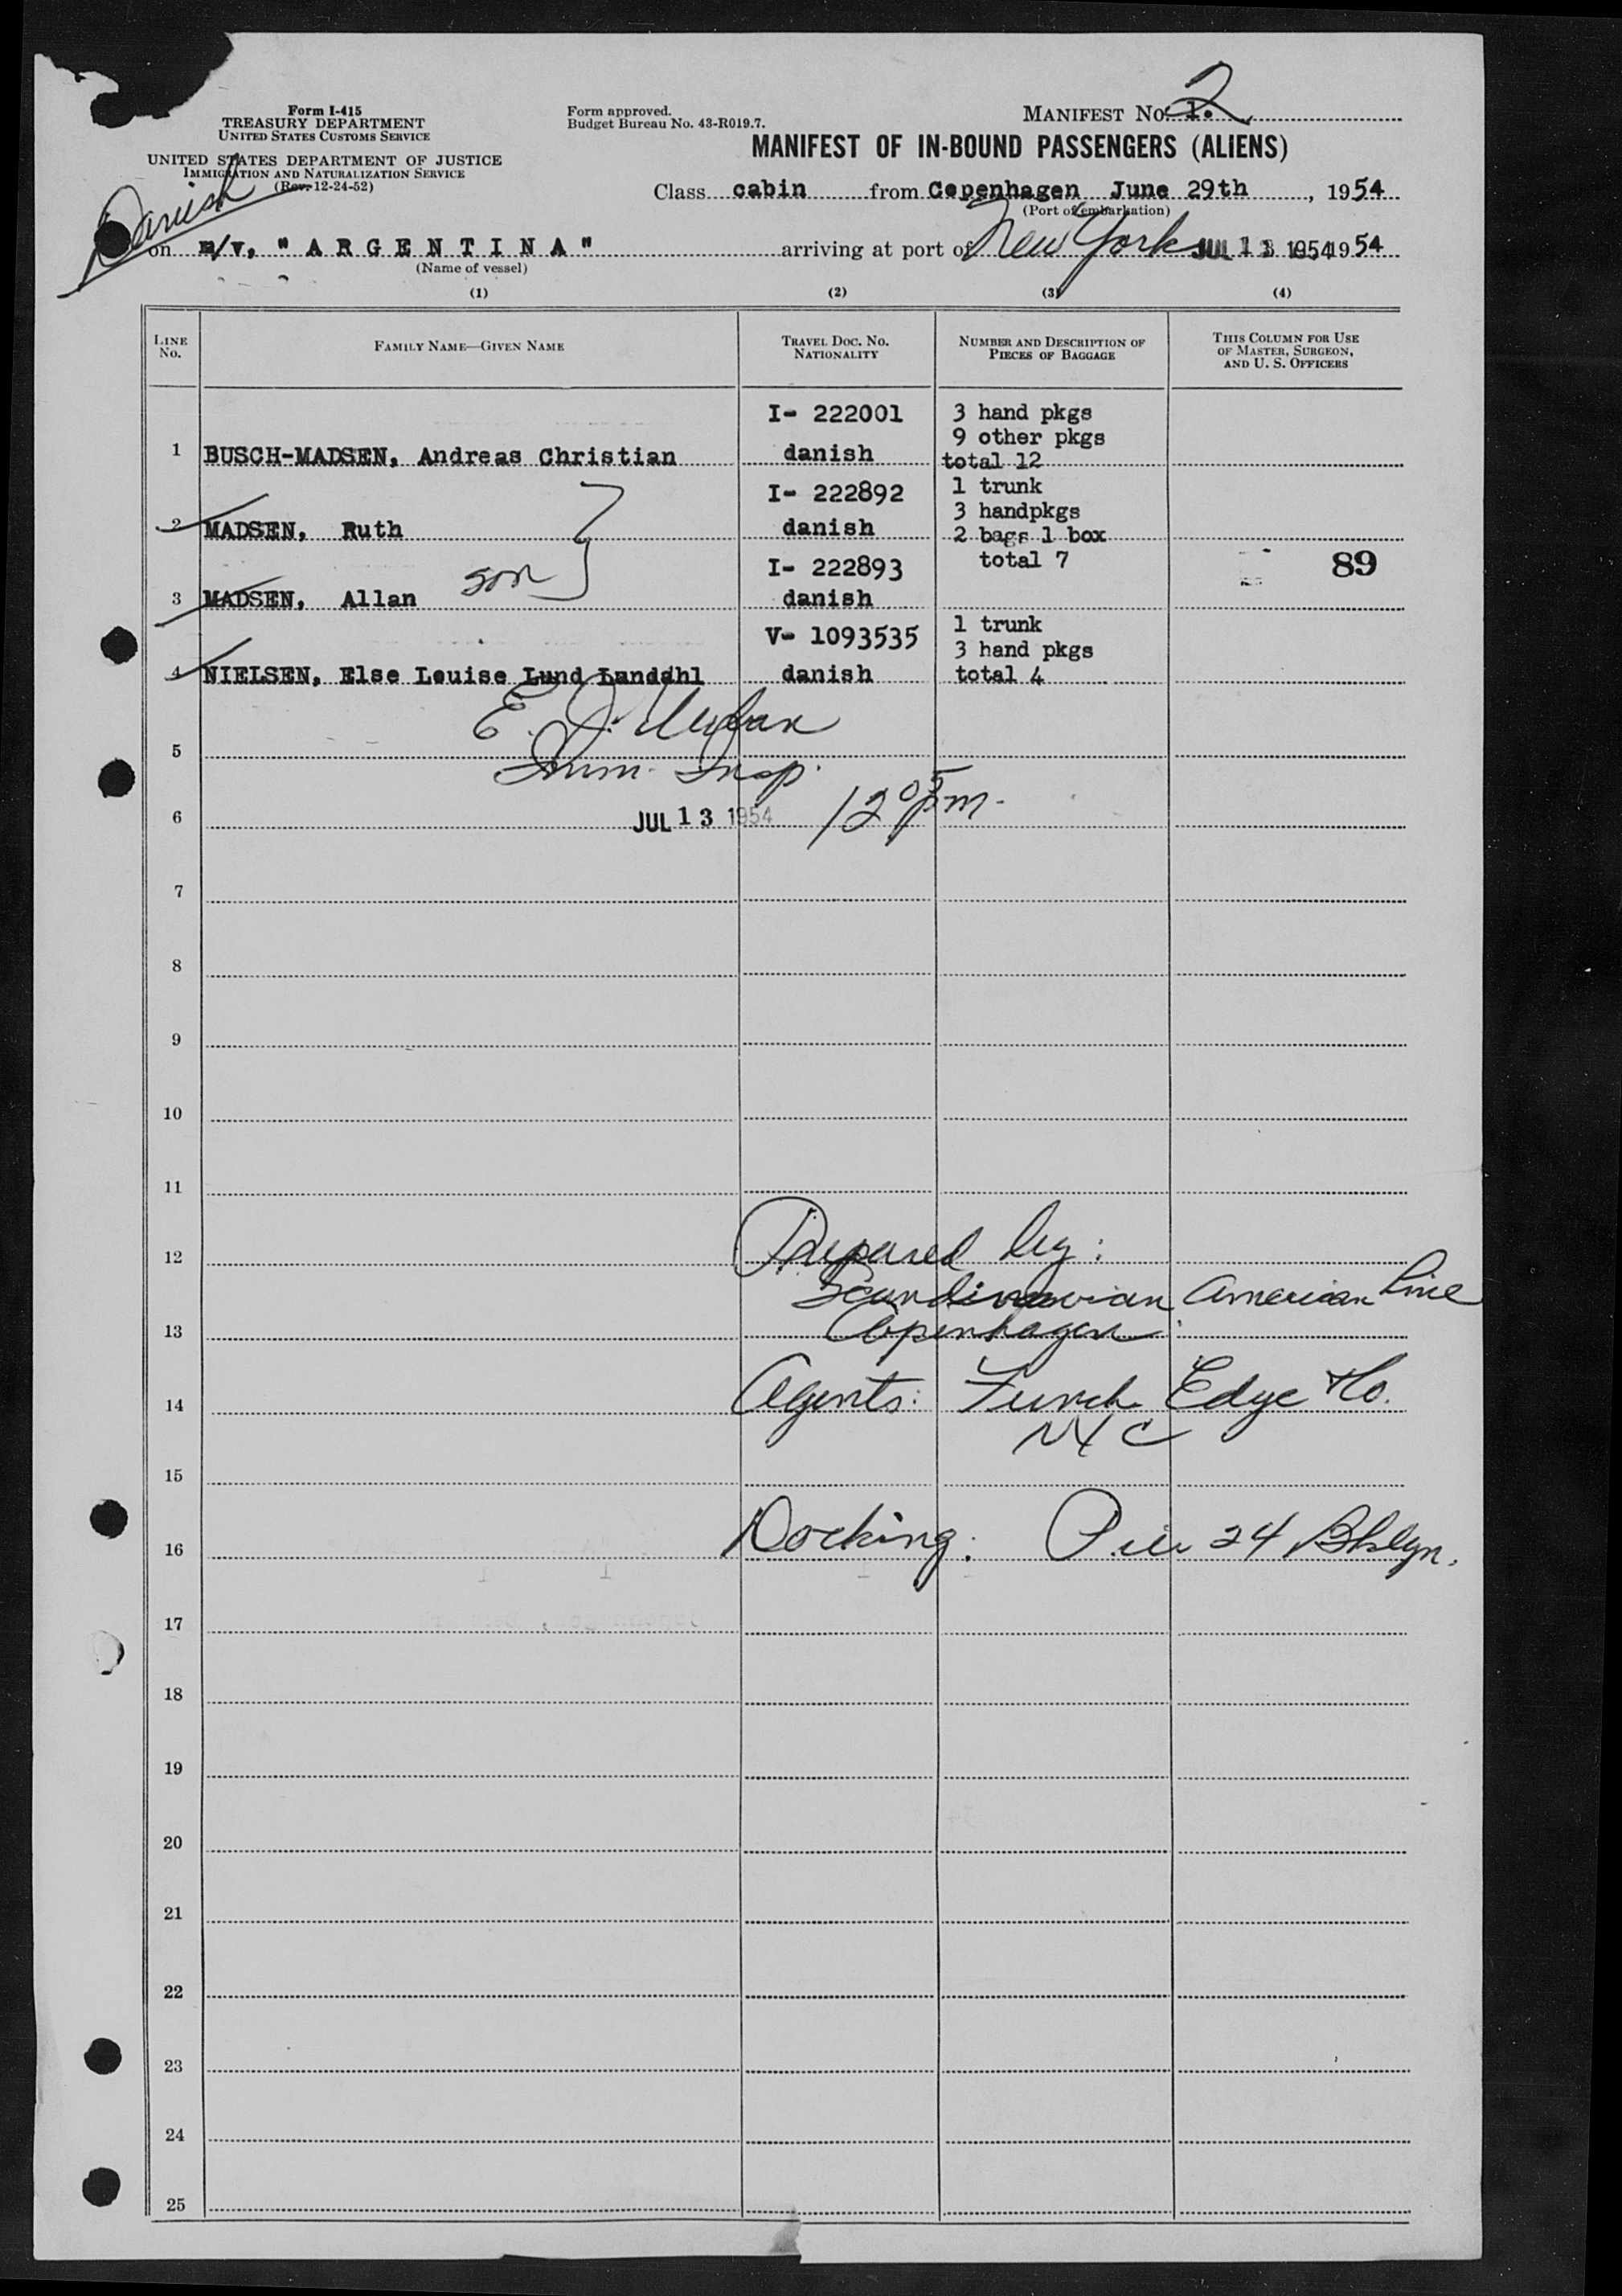 Form I-415
TREASURY DEPARTMENT
UNITED STATES CUSTOMS SERVICE
UNITED STATES DEPARTMENT OF JUSTICE
IMMIGRATION AND NATURALIZATION SERVICE
(Rev. 12-24-52)
Danish
Form approved.
Budget Bureau No. 43-R019.7.
MANIFEST No. 1. 2
MANIFEST OF IN-BOUND PASSENGERS (ALIENS)
Class cabin from Copenhagen June 29th, 1954
(Port of embarkation)
on m/v, "ARGENTINA" arriving at port of New York JUL 13 1954 1954
(Name of vessel)
(1) (2) (3) (4)
LINE No. FAMILY NAME—GIVEN NAME TRAVEL DOC. No. NATIONALITY NUMBER AND DESCRIPTION OF PIECES OF BAGGAGE THIS COLUMN FOR USE OF MASTER, SURGEON, AND U. S. OFFICERS
I- 222001 3 hand pkgs
9 other pkgs
1 BUSCH-MADSEN, Andreas Christian danish total 12
I- 222892 1 trunk
3 handpkgs
2 MADSEN, Ruth danish 2 bags 1 box
I- 222893 total 7 89
3 MADSEN, Allan son danish
V- 1093535 1 trunk
3 hand pkgs
4 NIELSEN, Else Louise Lund Landahl danish total 4
E. J.
5
Imm. Insp.
6 JUL 13 1954 12 05 pm.
7
8
9
10
11
12 Prepared by:
Scandinavian American Line
13 Copenhagen
14 Agents: Funch Edye & Co.
NYC
15
16 Docking: Pier 24 Bklyn.
17
18
19
20
21
22
23
24
25